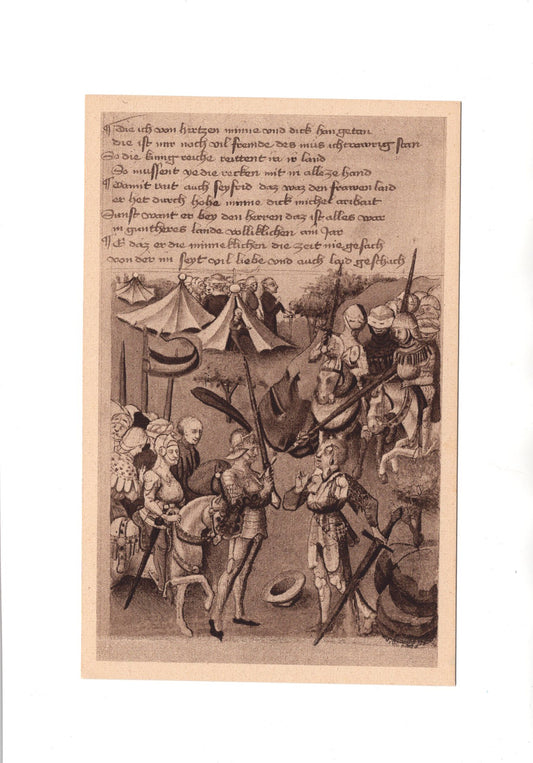 ¶ Die ich von hertzen minne vnd dick han getan
die ist mir noch vil fremde des müs ich trawrig stan
So die küng reiche reittent in ir land
So müssent ye die recken mit in alle ze hand
¶ Damit rait auch seyfrid daz waz den frawen laid
er het durch hohe minne dick michel aribait
Sunst want er bey den herren daz ist alles war
in guntheres lande volliklichen ain Jar
¶ E daz er die minneklichen die zeit nie gesach
von der im seyt vil liebe vnd auch laid geschach